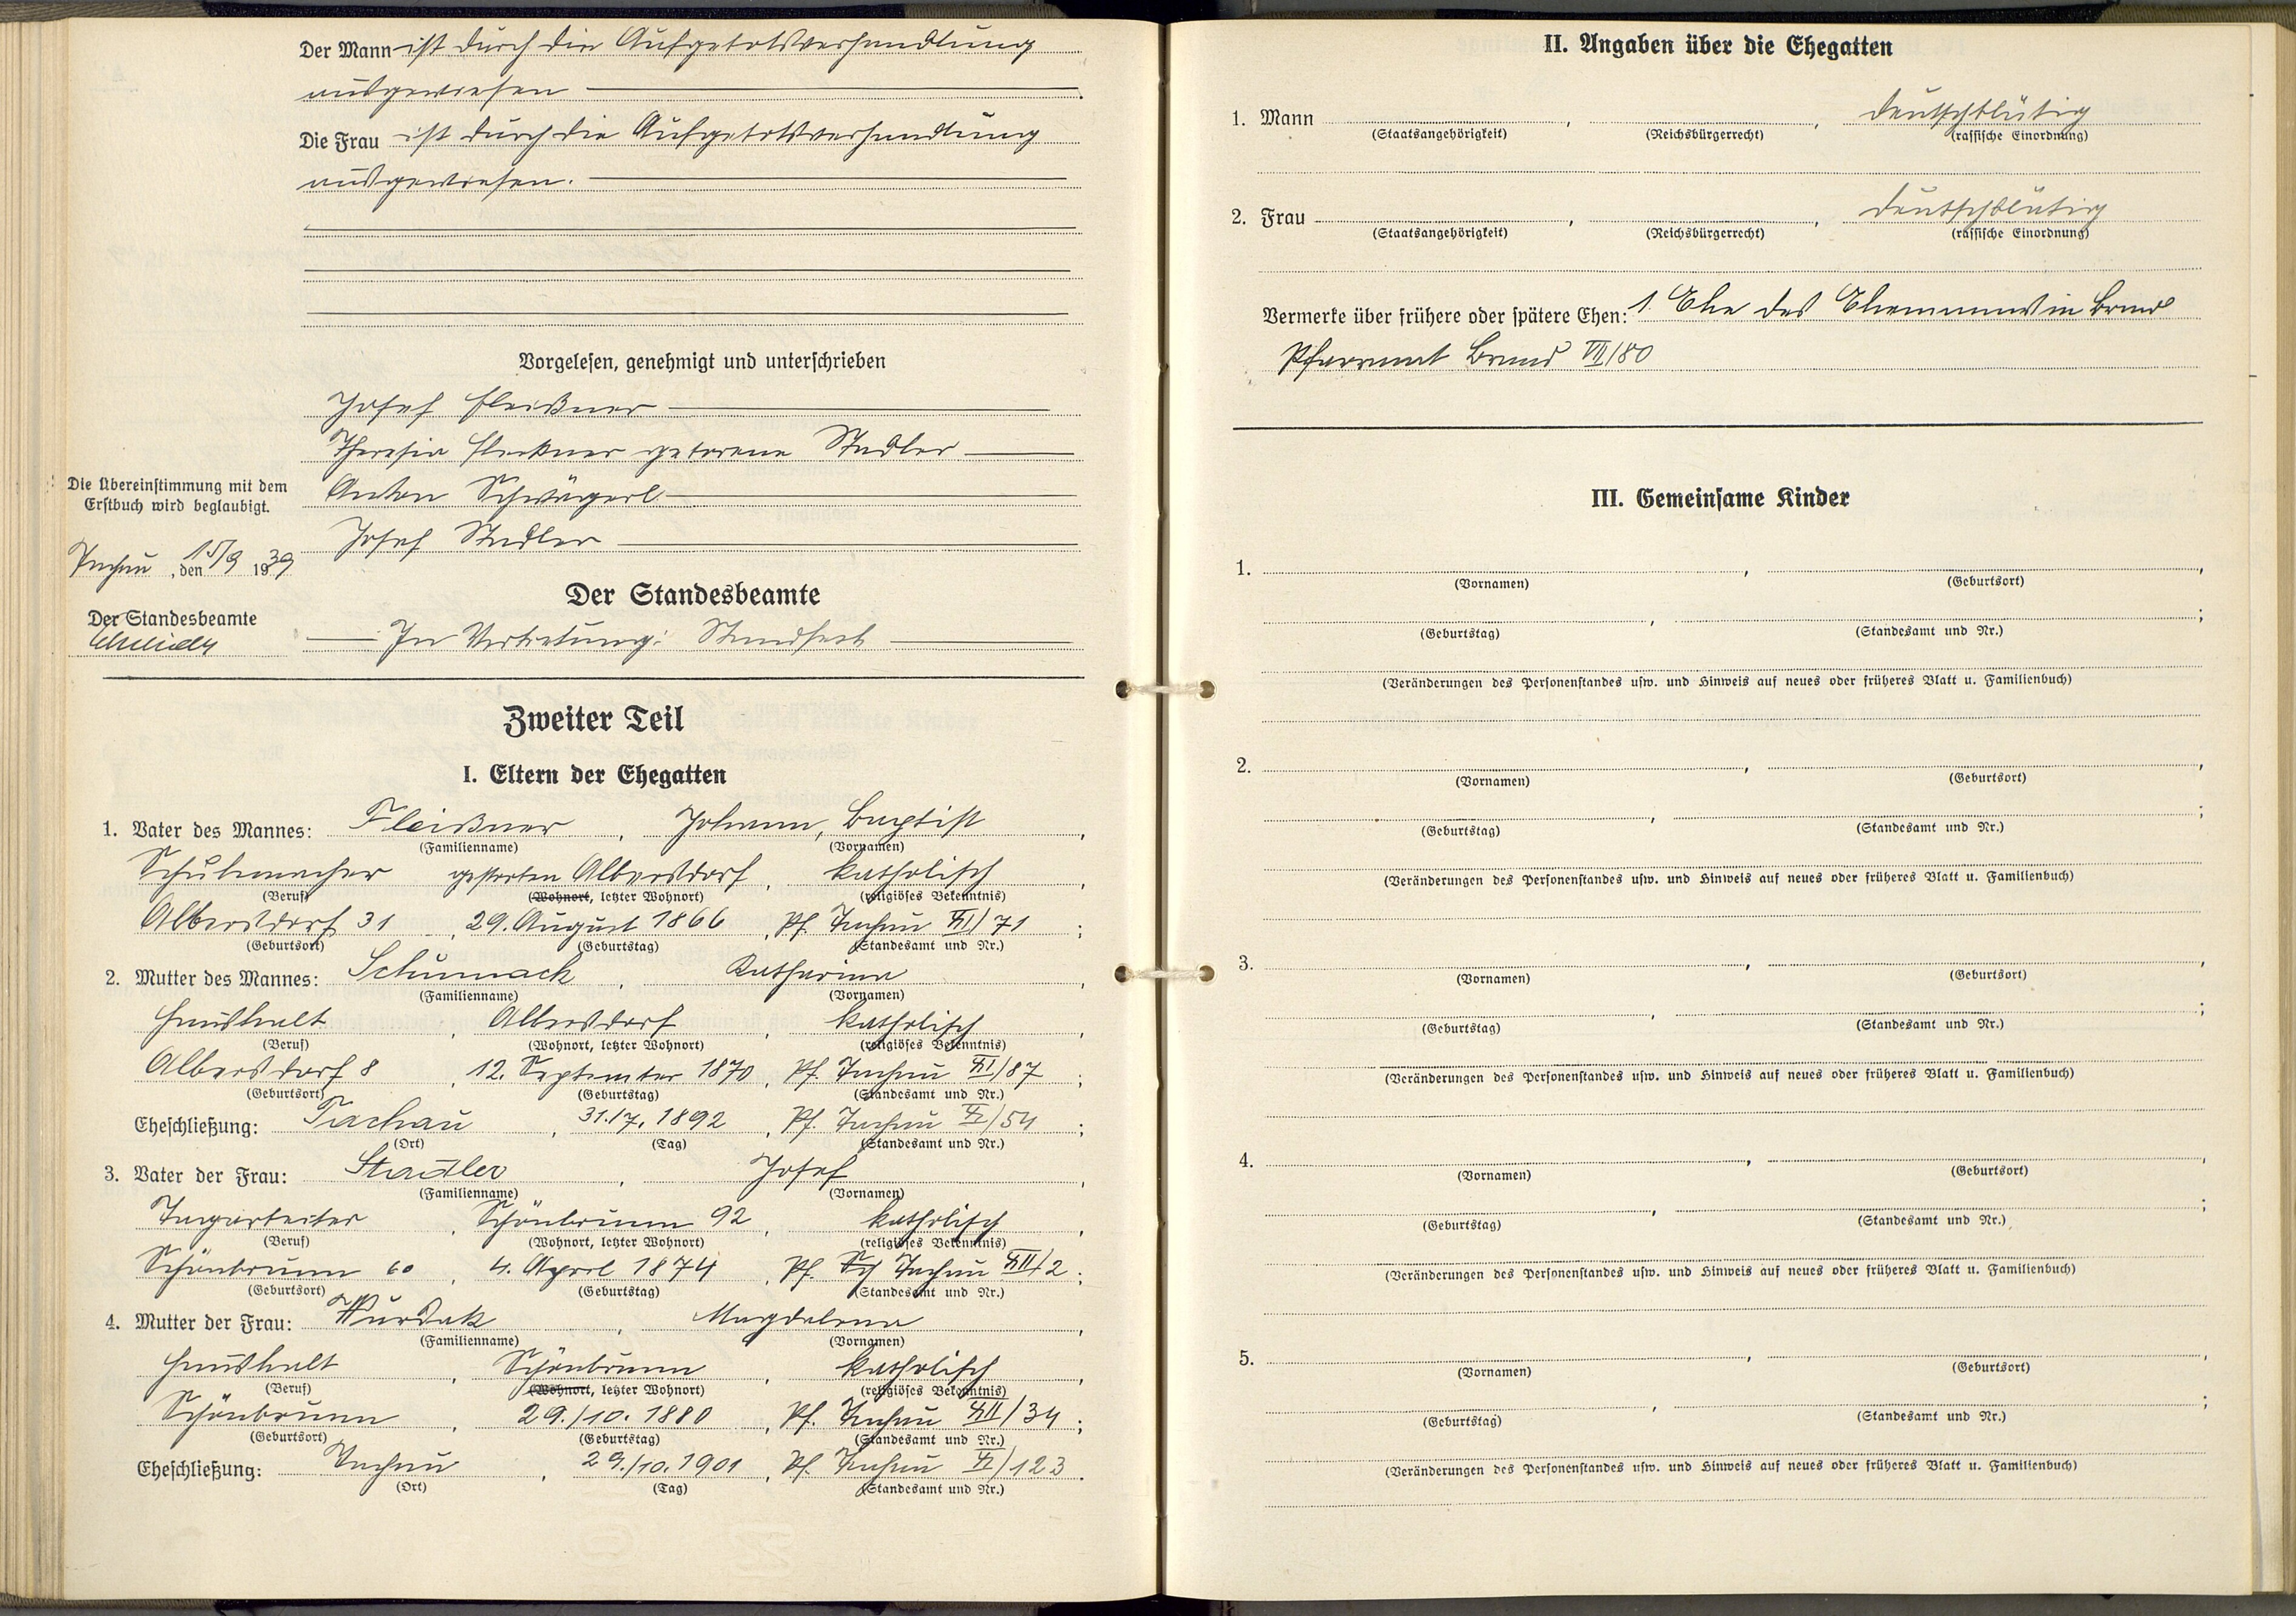 Der Mann ist durch die Aufgebotsverhandlung
ausgewiesen
Die Frau ist durch die Aufgebotsverhandlung
ausgewiesen.
Vorgelesen, genehmigt und unterschrieben
Josef Fleißner
Theresia Fleißner geborene Stadler
Anton Schwägerl
Josef Stadler
Die Übereinstimmung mit dem
Erstbuch wird beglaubigt.
Tachau, den 15/9 1939
Der Standesbeamte
Der Standesbeamte
In Vertretung:
Zweiter Teil
I. Eltern der Ehegatten
1. Vater des Mannes: Fleißner, Johann, Baptist,
(Familienname) (Vornamen)
Schuhmacher gestorben Albersdorf, katholisch,
(Beruf) (Wohnort, letzter Wohnort) (religiöses Bekenntnis)
Albersdorf 31, 29. August 1866, Pf. Tachau XI/71;
(Geburtsort) (Geburtstag) (Standesamt und Nr.)
2. Mutter des Mannes: Schumach, Katharina,
(Familienname) (Vornamen)
Haushalt, Albersdorf, katholisch,
(Beruf) (Wohnort, letzter Wohnort) (religiöses Bekenntnis)
Albersdorf 8, 12. September 1870, Pf. Tachau XI/87;
(Geburtsort) (Geburtstag) (Standesamt und Nr.)
Eheschließung: Tachau, 31.17. 1892, Pf. Tachau X/54;
(Ort) (Tag) (Standesamt und Nr.)
3. Vater der Frau: Stadler, Josef,
(Familienname) (Vornamen)
Tagarbeiter, Schönbrunn 92, katholisch,
(Beruf) (Wohnort, letzter Wohnort) (religiöses Bekenntnis)
Schönbrunn 60, 4. April 1874, Pf. Sch Tachau XII/2;
(Geburtsort) (Geburtstag) (Standesamt und Nr.)
4. Mutter der Frau: Wurdak, Magdalena,
(Familienname) (Vornamen)
Haushalt, Schönbrunn, katholisch,
(Beruf) (Wohnort, letzter Wohnort) (religiöses Bekenntnis)
Schönbrunn, 29./10. 1880, Pf. Tachau XII/34;
(Geburtsort) (Geburtstag) (Standesamt und Nr.)
Eheschließung: Tachau, 29./10. 1901, Pf. Tachau X/123.
(Ort) (Tag) (Standesamt und Nr.)
II. Angaben über die Ehegatten
1. Mann , , deutschblütig
(Staatsangehörigkeit) (Reichsbürgerrecht) (rassische Einordnung)
2. Frau , , deutschblütig
(Staatsangehörigkeit) (Reichsbürgerrecht) (rassische Einordnung)
Vermerke über frühere oder spätere Ehen: 1. Ehe des Ehemannes in Brand
Pfarramt Brand VII/80
III. Gemeinsame Kinder
1. , ,
(Vornamen) (Geburtsort)
, ;
(Geburtstag) (Standesamt und Nr.)
(Veränderungen des Personenstandes usw. und Hinweis auf neues oder früheres Blatt u. Familienbuch)
2. , ,
(Vornamen) (Geburtsort)
, ;
(Geburtstag) (Standesamt und Nr.)
(Veränderungen des Personenstandes usw. und Hinweis auf neues oder früheres Blatt u. Familienbuch)
3. , ,
(Vornamen) (Geburtsort)
, ;
(Geburtstag) (Standesamt und Nr.)
(Veränderungen des Personenstandes usw. und Hinweis auf neues oder früheres Blatt u. Familienbuch)
4. , ,
(Vornamen) (Geburtsort)
, ;
(Geburtstag) (Standesamt und Nr.)
(Veränderungen des Personenstandes usw. und Hinweis auf neues oder früheres Blatt u. Familienbuch)
5. , ,
(Vornamen) (Geburtsort)
, ;
(Geburtstag) (Standesamt und Nr.)
(Veränderungen des Personenstandes usw. und Hinweis auf neues oder früheres Blatt u. Familienbuch)